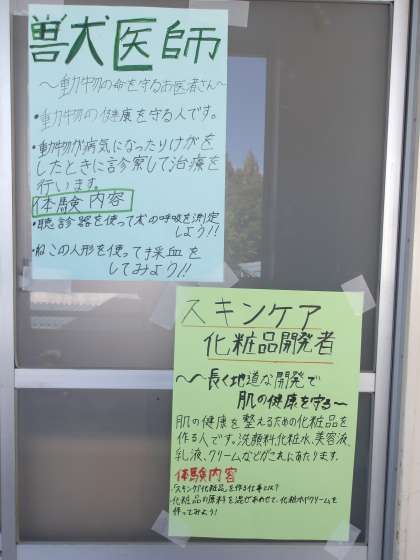 獣医師
～動物の命を守るお医者さん～
・動物の健康を守る人です。
・動物が病気になったりけがを
したときに診察して治療を
行います。
体験内容
・聴診器を使って犬の呼吸を測定
しよう!!
・ねこの人形を使って採血を
してみよう!!
スキンケア
化粧品開発者
～長く地道な開発で
肌の健康を守る～
肌の健康を整えるための化粧品を
作る人です。洗顔料、化粧水、美容液、
乳液、クリームなどがこれにあたります。
体験内容
・「スキンケア化粧品」を作る仕事とは?
・化粧品の原料を混ぜあわせて、化粧水やクリームを
作ってみよう!